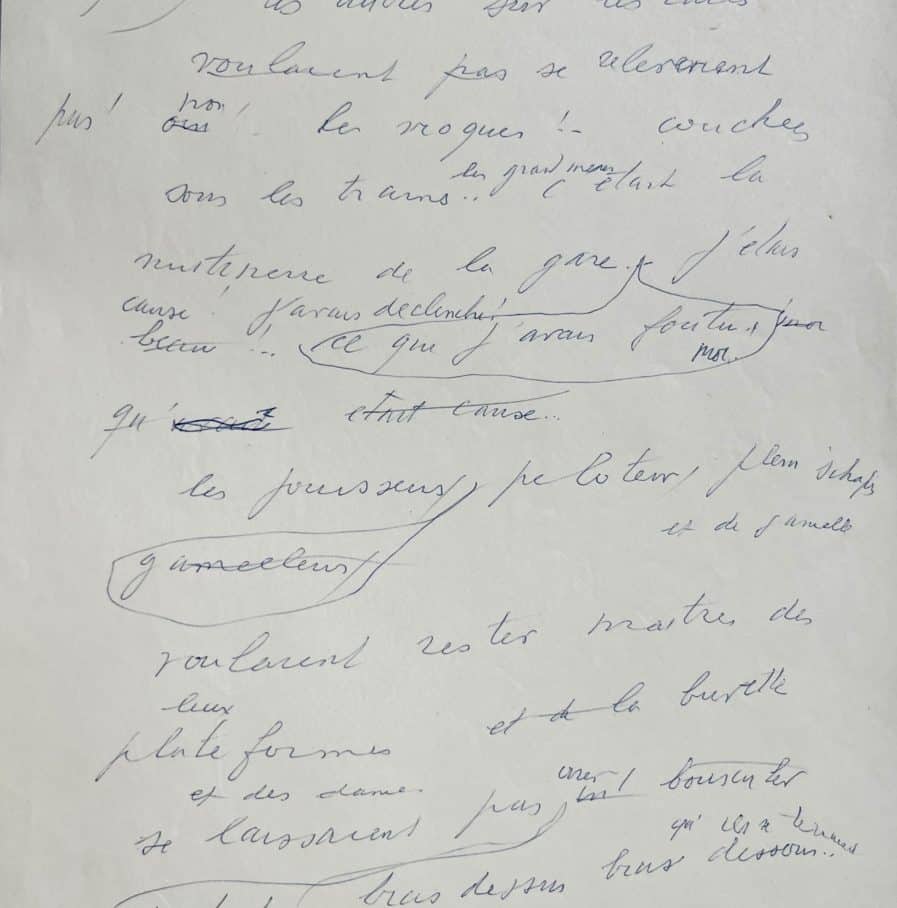 les autres sur les
voulaient pas se releveraient
pas! non! les moques!.. couchées
sous les trains.. les grand meres c'étaient la
de la gare. j'étais
cause! j'avais declenché!
beau!.. ce que j'avais foutu.. moi
moi..
qu' etait cause..
les jouisseurs, peloteurs, plein
et de gamelle
gamelleurs
voulaient rester maitres des
leur
plate formes et de la buvette
et des dames
se laissaient pas bousculer
qui
bras dessus bras dessous..